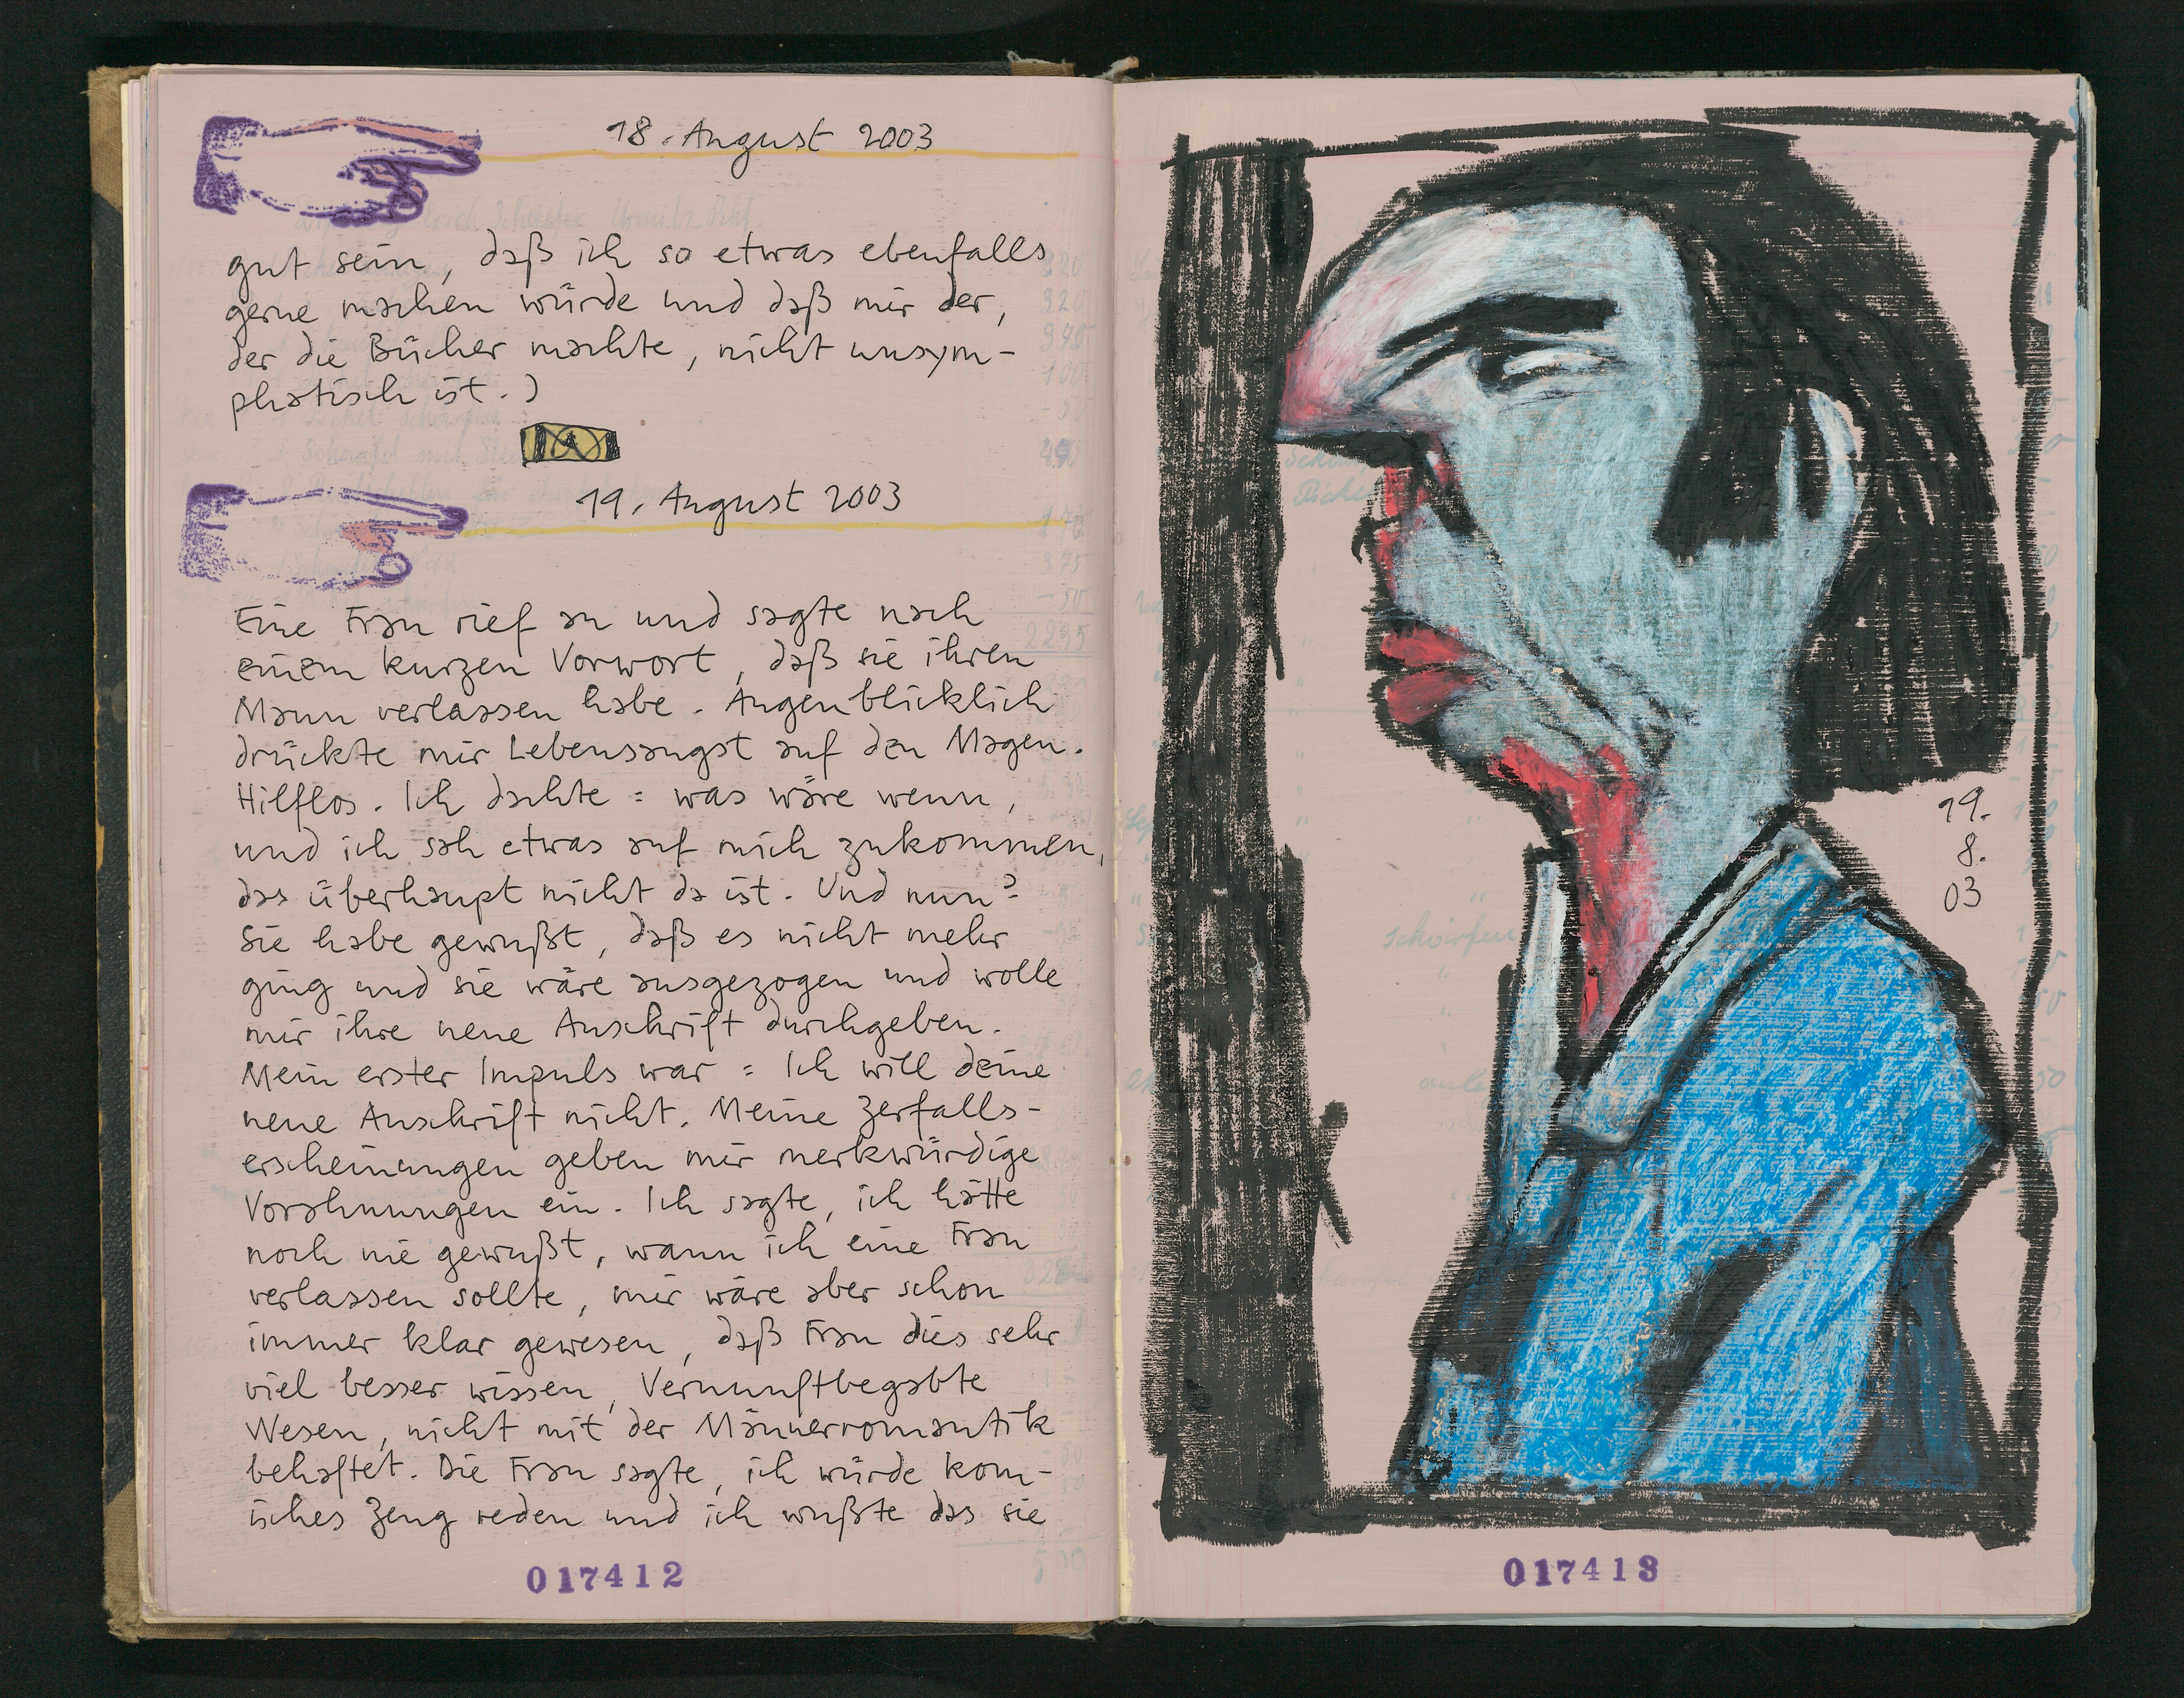 18. August 2003
gut sein, daß ich so etwas ebenfalls
gerne machen würde und daß mir der,
der die Bücher machte, nicht unsym-
phatisch ist.)
19. August 2003
Eine Frau rief an und sagte nach
einem kurzen Vorwort, daß sie ihren
Mann verlassen habe. Augenblicklich
drückte mir Lebensangst auf den Magen.
Hilflos. Ich dachte: was wäre wenn,
und ich sah etwas auf mich zukommen,
das überhaupt nicht da ist. Und nun?
Sie habe gewußt, daß es nicht mehr
ging und sie wäre ausgezogen und wolle
mir ihre neue Anschrift durchgeben.
Mein erster Impuls war: Ich will deine
neue Anschrift nicht. Meine Zerfalls-
erscheinungen geben mir merkwürdige
Vorahnungen ein. Ich sagte, ich hätte
noch nie gewußt, wann ich eine Frau
verlassen sollte, mir wäre aber schon
immer klar gewesen, daß Frau dies sehr
viel besser wissen, Vernunftbegabte
Wesen, nicht mit der Männerromantik
behaftet. Die Frau sagte, ich würde kom-
isches Zeug reden und ich wußte das sie
017412
19.
8.
03
017413